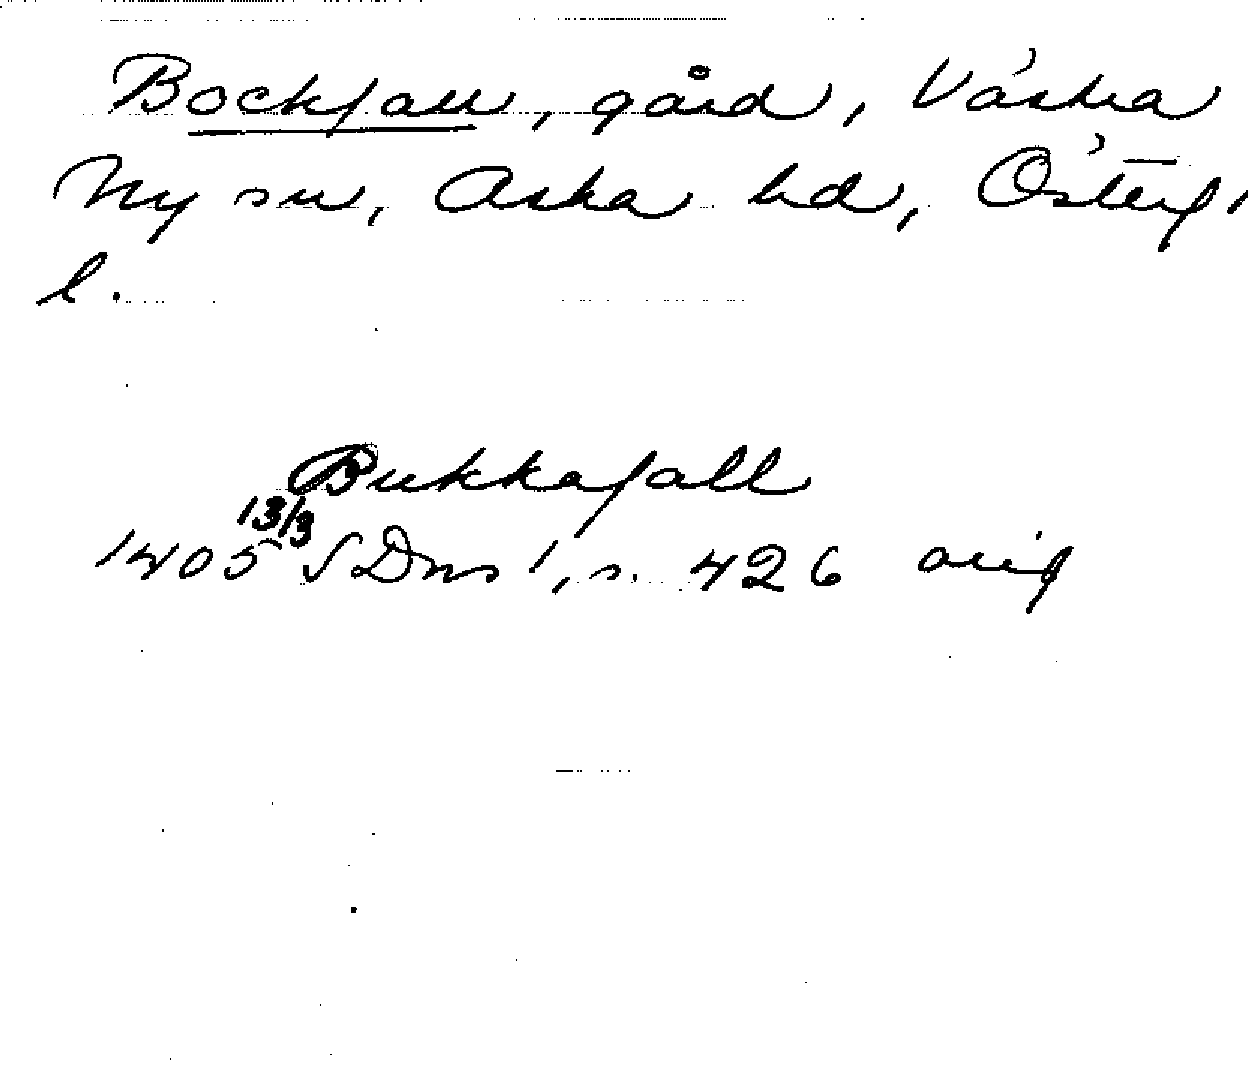 Bockfall, gård, Västra
Ny sn, Aska hd, Österg,
l.
Bukkafall
1405 13/3 SDns 1, s. 426 orig